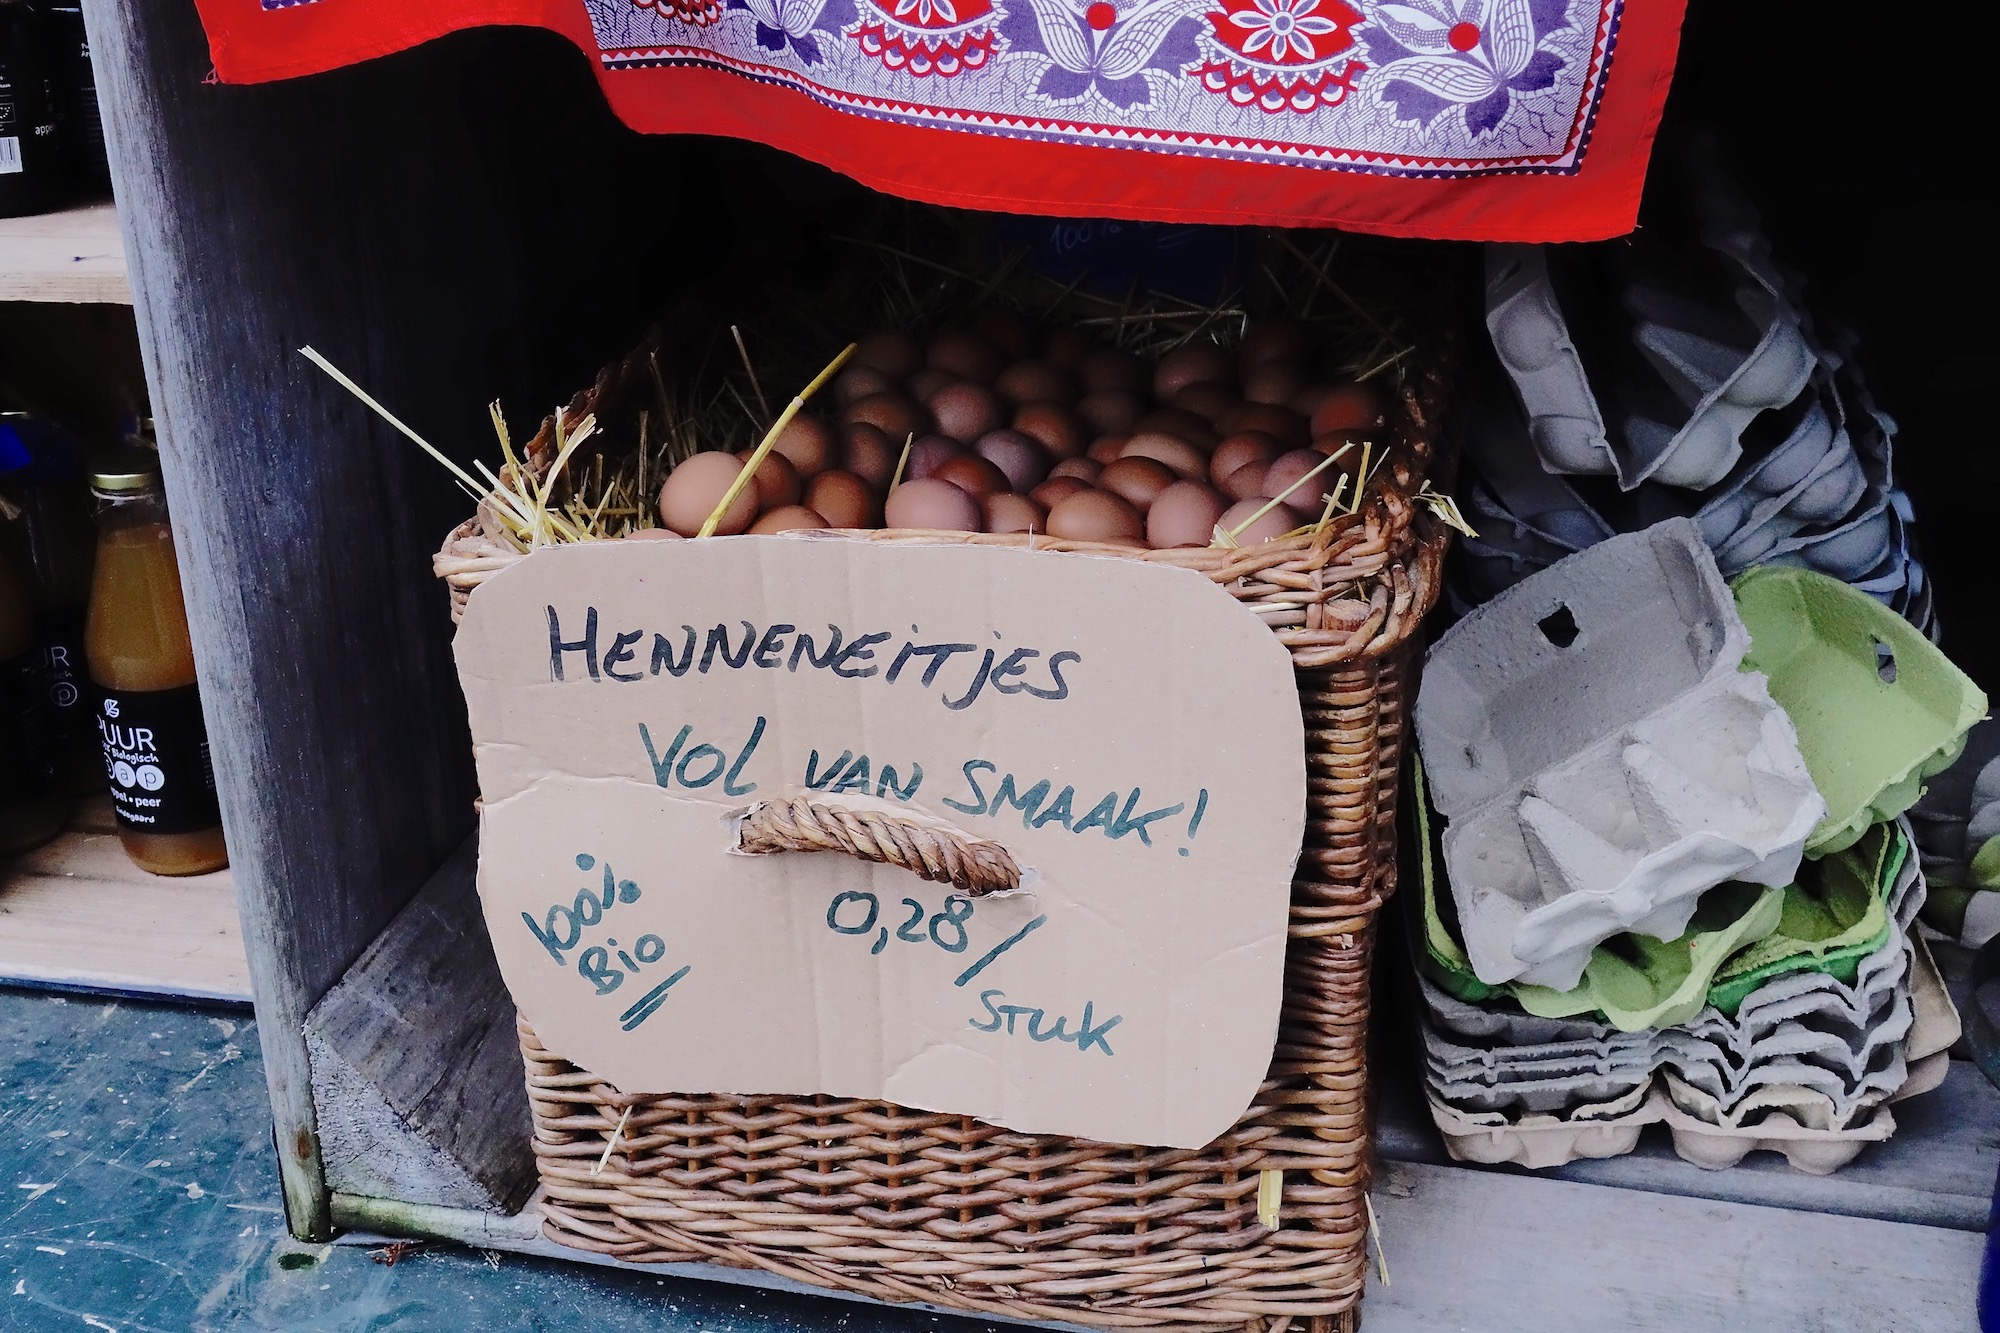 HENNENEITJES
VOL VAN SMAAK!
100%
BIO
0,28/
STUK
100%
appe
PUUR
Biologisch
sap
appel • peer